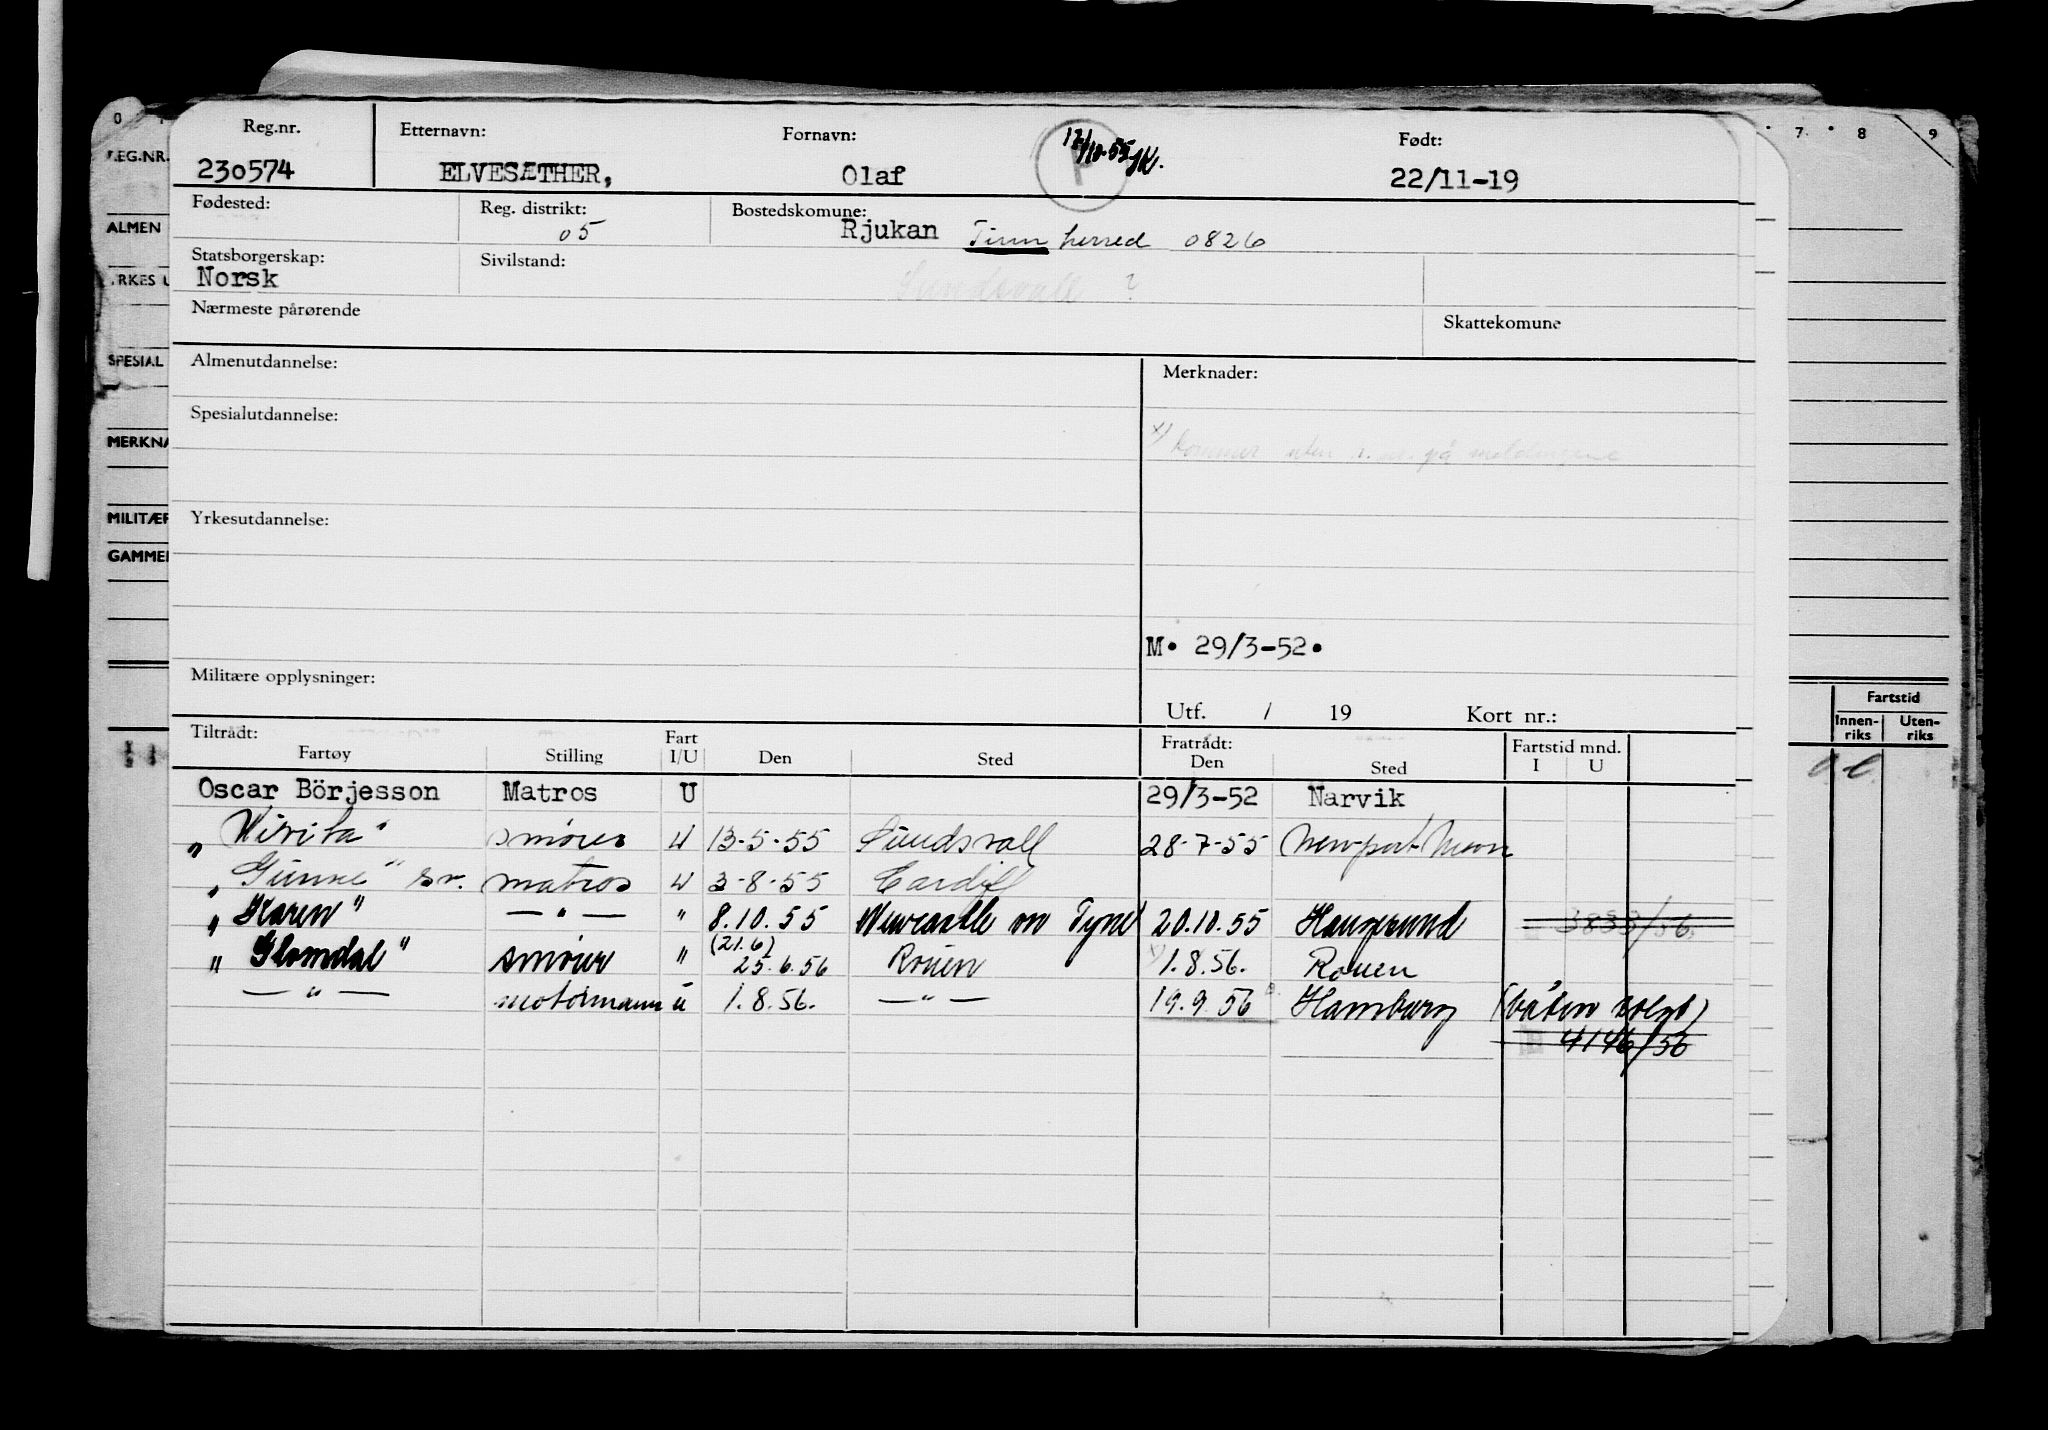 Reg.nr. Etternavn: Fornavn: Født:
230574 ELVESÆTHER, Olaf 22/11-19
Fødested: Reg. distrikt: 05 Bostedskomune: Rjukan Tinn herred 0826
Statsborgerskap: Norsk Sivilstand:
Sundsvall ?
Nærmeste pårørende Skattekomune
Almenutdannelse: Merknader:
Spesialutdannelse:
x) kommer uten r. nr. på meldingene
Yrkesutdannelse:
M. 29/3-52.
Militære opplysninger:
Utf. / 19 Kort nr.:
Tiltrådt: Fratrådt: Fartstid mnd.
Fartøy Stilling Fart I/U Den Sted Den Sted I U
Oscar Börjesson Matros U 29/3-52 Narvik
" smører U 13-5-55 Sundsvall 28-7-55 Newport
" sv. matros U 3-8-55 Cardiff
"Karen" —"— " 8.10.55 Newcastle on Tyne 20.10.55 Haugesund 3833/56
"Glomdal" smører " (21.6) 25.6.56 Rouen x) 1.8.56. Rouen
—"— motormann u 1.8.56. —"— 19.9.56 Hamburg (båten solgt)
4146/56
0 1 7 8 9
REG.NR.
ALMEN
YRKES U
SPESIAL
MERKNA
MILITÆR
GAMMEL
Fartstid
Innen-riks Uten-riks